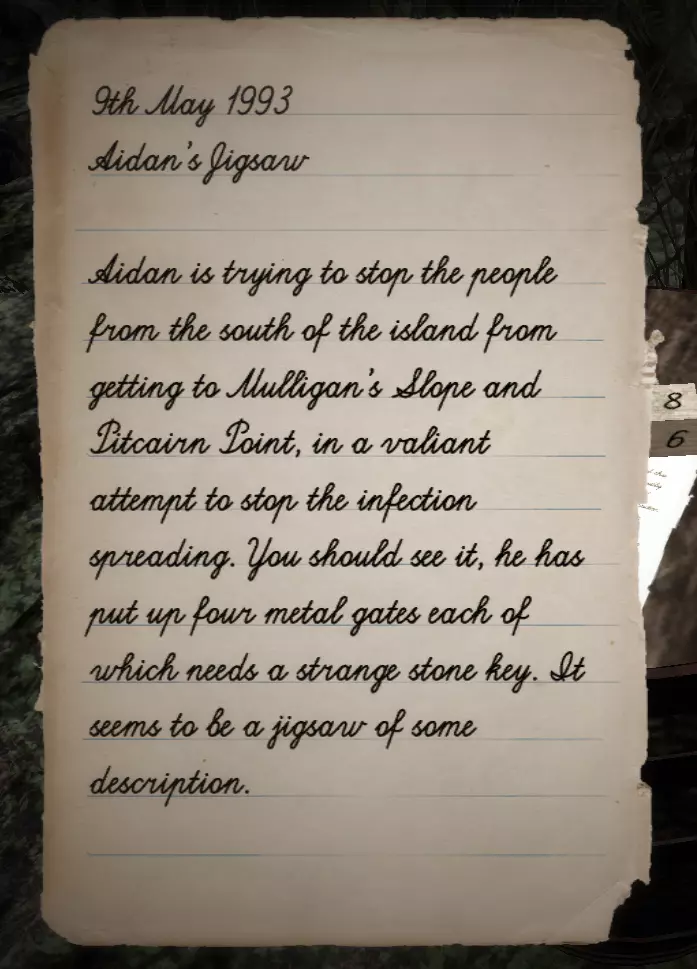 9th May 1993
Aidan's Jigsaw
Aidan is trying to stop the people
from the south of the island from
getting to Mulligan's Slope and
Pitcairn Point, in a valiant
attempt to stop the infection
spreading. You should see it, he has
put up four metal gates each of
which needs a strange stone key. It
seems to be a jigsaw of some
description.
8
6